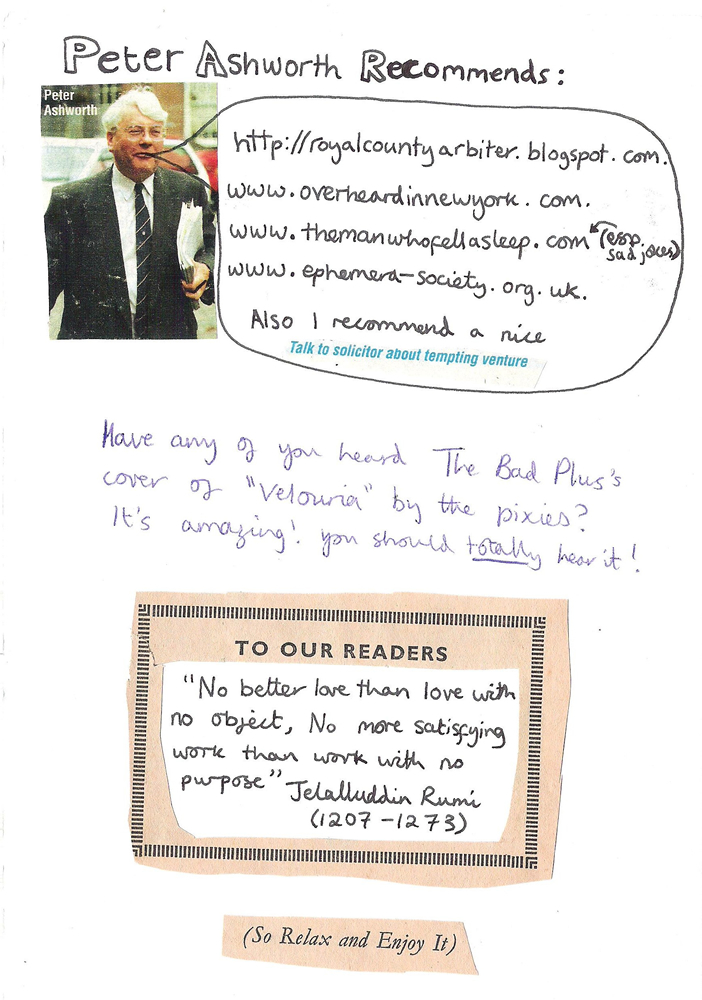 Peter Ashworth Recommends:
Peter
Ashworth
http://royalcountyarbiter.blogspot.com.
www.overheardinnewyork.com.
www.themanwhofellasleep.com (esp.
sad jokes)
www.ephemera-society.org.uk.
Also I recommend a nice
Talk to solicitor about tempting venture
Have any of you heard The Bad Plus's
cover of "Velouria" by the pixies?
It's amazing! you should totally hear it!
TO OUR READERS
"No better love than love with
no object, No more satisfying
work than work with no
purpose" Jelalluddin Rumi
(1207-1273)
(So Relax and Enjoy It)